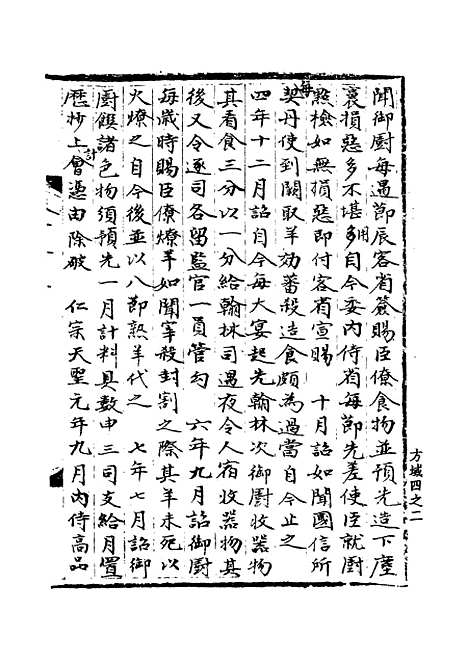 聞御厨每遇節辰客省簽賜臣僚食物並預先造下塵
裛損惡多不堪用自今委內侍省每節先差使臣就厨
㸃檢如無損惡即付客省宣賜　十月詔如聞國信所每
契丹使到闕取羊効蕃殺造食頗為過當自今止之
四年十二月詔自今每大宴起先翰林次御厨收器物
其看食三分以一分給翰林司遇夜令人宿收器物其
後又令逐司各留監官一員管勾　六年九月詔御厨
每歲時賜臣僚燎羊如聞宰殺封割之際其羊未死以
火燎之自今後並以八節熟羊代之　七年七月詔御
厨饌諸色物須預先一月計料具數申三司支給月置
曆抄上會計憑由除破　仁宗天聖元年九月內侍高品
方域四之二